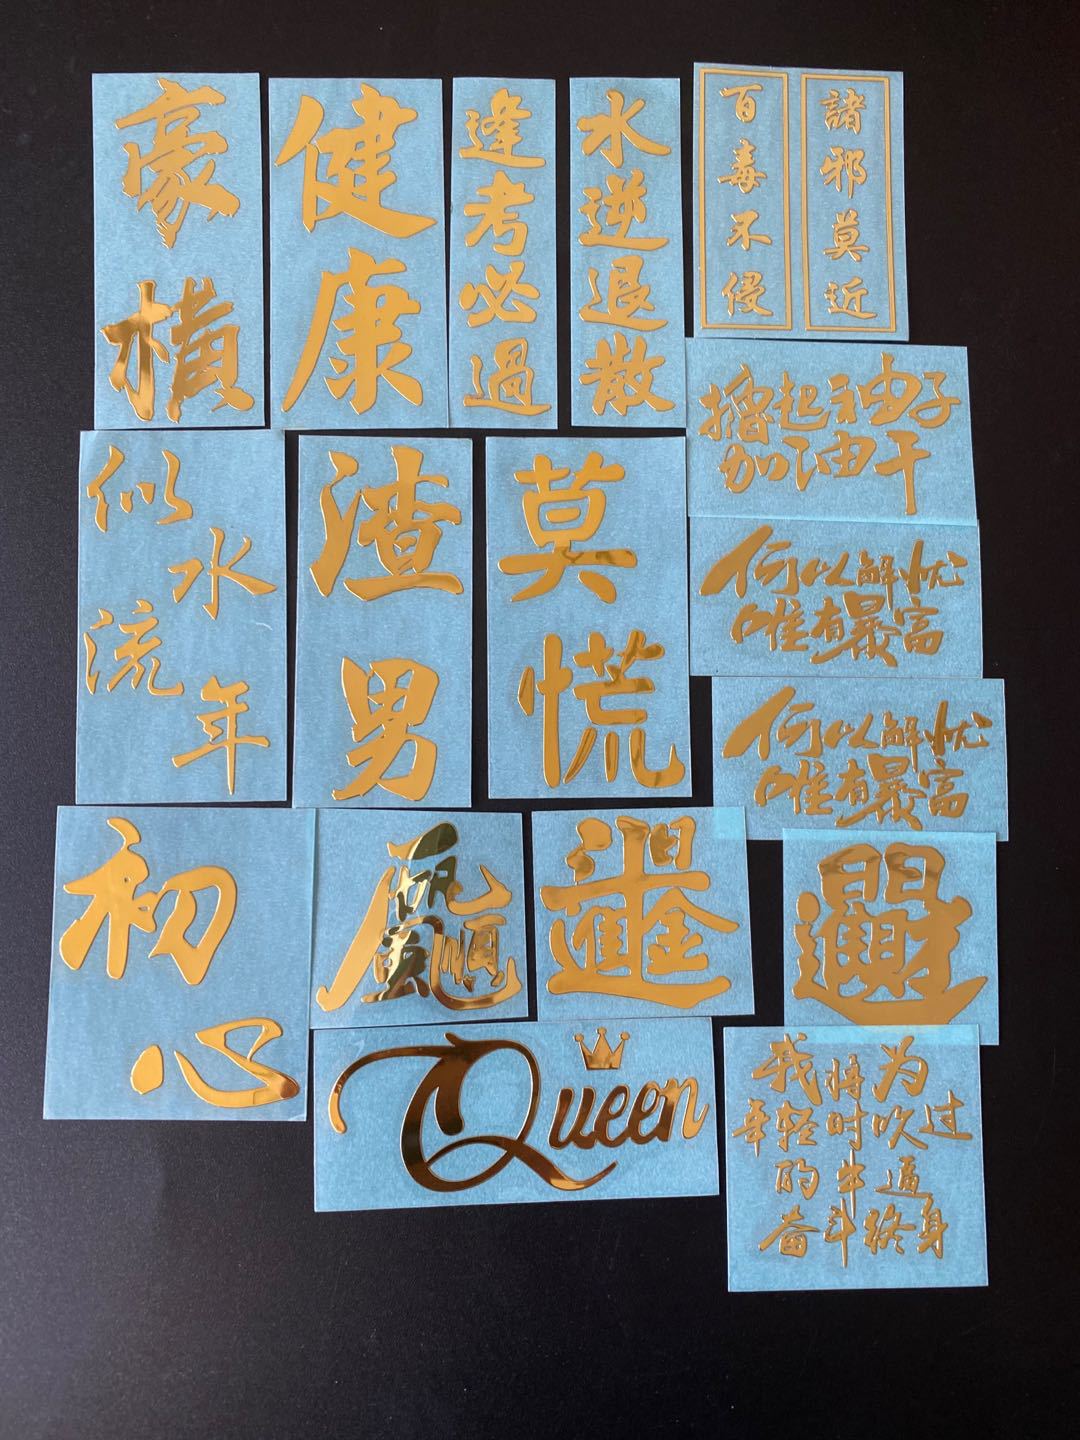 豪橫
健康
逢考必過
水逆退散
諸邪莫近
百毒不侵
擼起袖子
加油干
似水流年
渣男
莫慌
何以解忧
唯有暴富
何以解忧
唯有暴富
初心
一帆風順
日進斗金
日日進財
Queen
我将为
年轻时吹过
的牛逼
奋斗终身